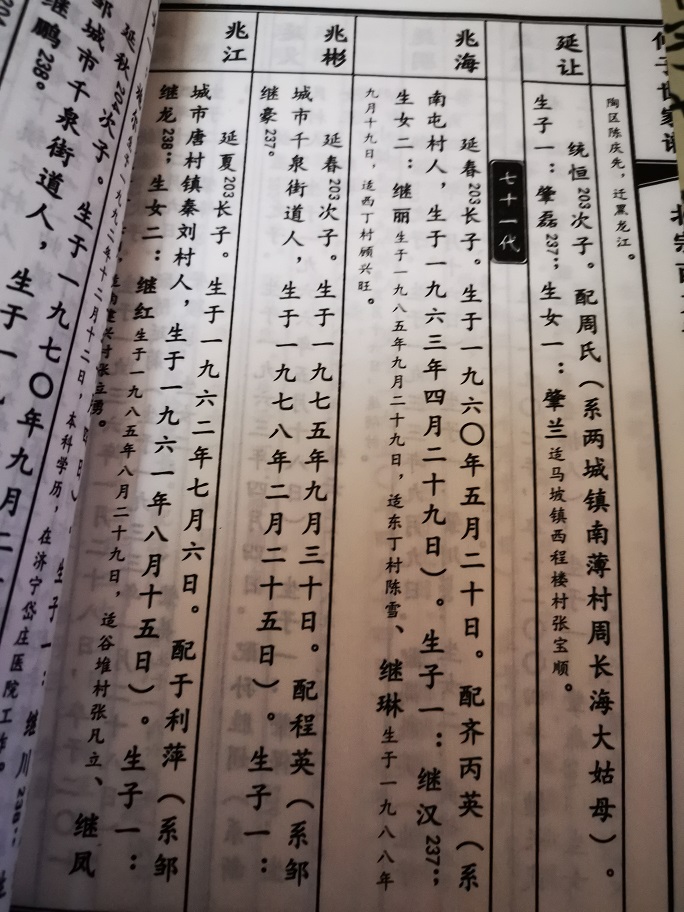 陶区陈庆先，迁黑龙江。
延让
统恒203次子。配周氏（系两城镇南薄村周长海大姑母）。
生子一：肇磊237；生女一：肇兰适马坡镇西程楼村张宝顺。
七十一代
兆海
延春203长子。生于一九六〇年五月二十日。配齐丙英（系
南屯村人，生于一九六三年四月二十九日）。生子一：继汉237；
生女二：继丽生于一九八五年九月二十九日，适东丁村陈雪、继琳生于一九八八年
九月十九日，适西丁村顾兴旺。
兆彬
延春203次子。生于一九七五年九月三十日。配程英（系邹
城市千泉街道人，生于一九七八年二月二十五日）。生子一：
继豪237。
兆江
延夏203长子。生于一九六二年七月六日。配于利萍（系邹
城市唐村镇秦刘村人，生于一九六一年八月十五日）。生子一：
继龙238；生女二：继红生于一九八五年八月二十九日，适谷堆村张凡立、继凤
延秋204次子。生于一
邹城市千泉街道人，生于一九七〇年九月二
继鹏238。